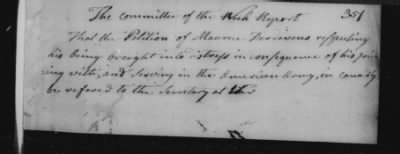 The committee of the Week Report 351
That the Petition of Maurice Desdevens respecting
his being brought into distress in consequence of his join
ing with, and serving in the American Army, in Canada
be refered to the Secretary at War